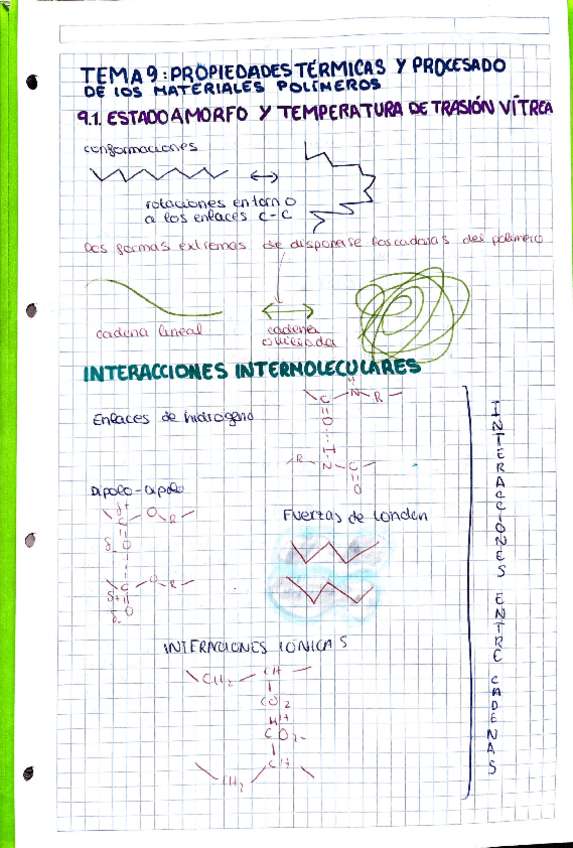 TEMA 9: PROPIEDADES TÉRMICAS Y PROCESADO
DE LOS MATERIALES POLÍMEROS
9.1. ESTADO AMORFO Y TEMPERATURA DE TRASIÓN VÍTREA
conformaciones
rotaciones entorno
a los enlaces C-C
Dos formas extremas de disponerse las cadenas del polímero
cadena lineal
cadena
INTERACCIONES INTERMOLECULARES
Enlaces de hidrógeno
C N R
O
H
R N C
O
Dipolo-Dipolo
δ+
C O R
δ- O
C O R
δ+
O
δ-
Fuerzas de London
INTERACIONES IÓNICAS
CH2 CH
CO2
H+
CO2-
CH
CH2
INTERACCIONES ENTRE CADENAS